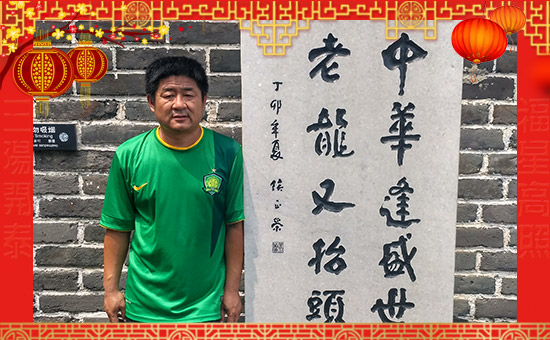 中華逢盛世
老龍又抬頭
丁卯年夏
勿吸煙
Smoking
福星高照
開泰